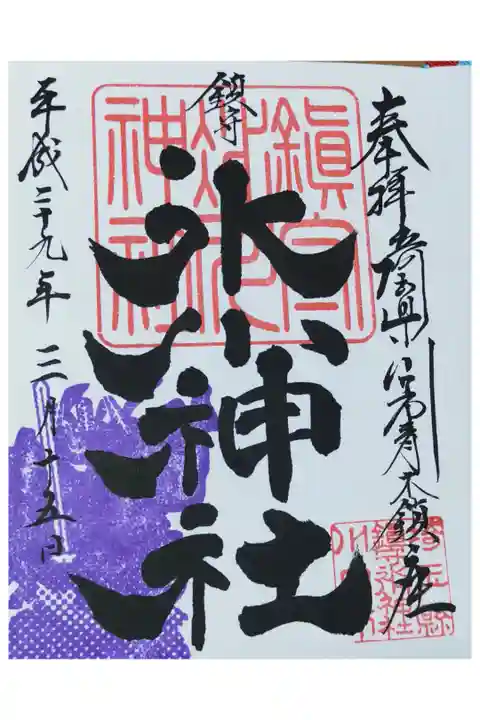 奉拝 埼玉県川口市青木鎮座
鎮守
氷川神社
平成二十九年三月十五日
鎮守
氷川
神社